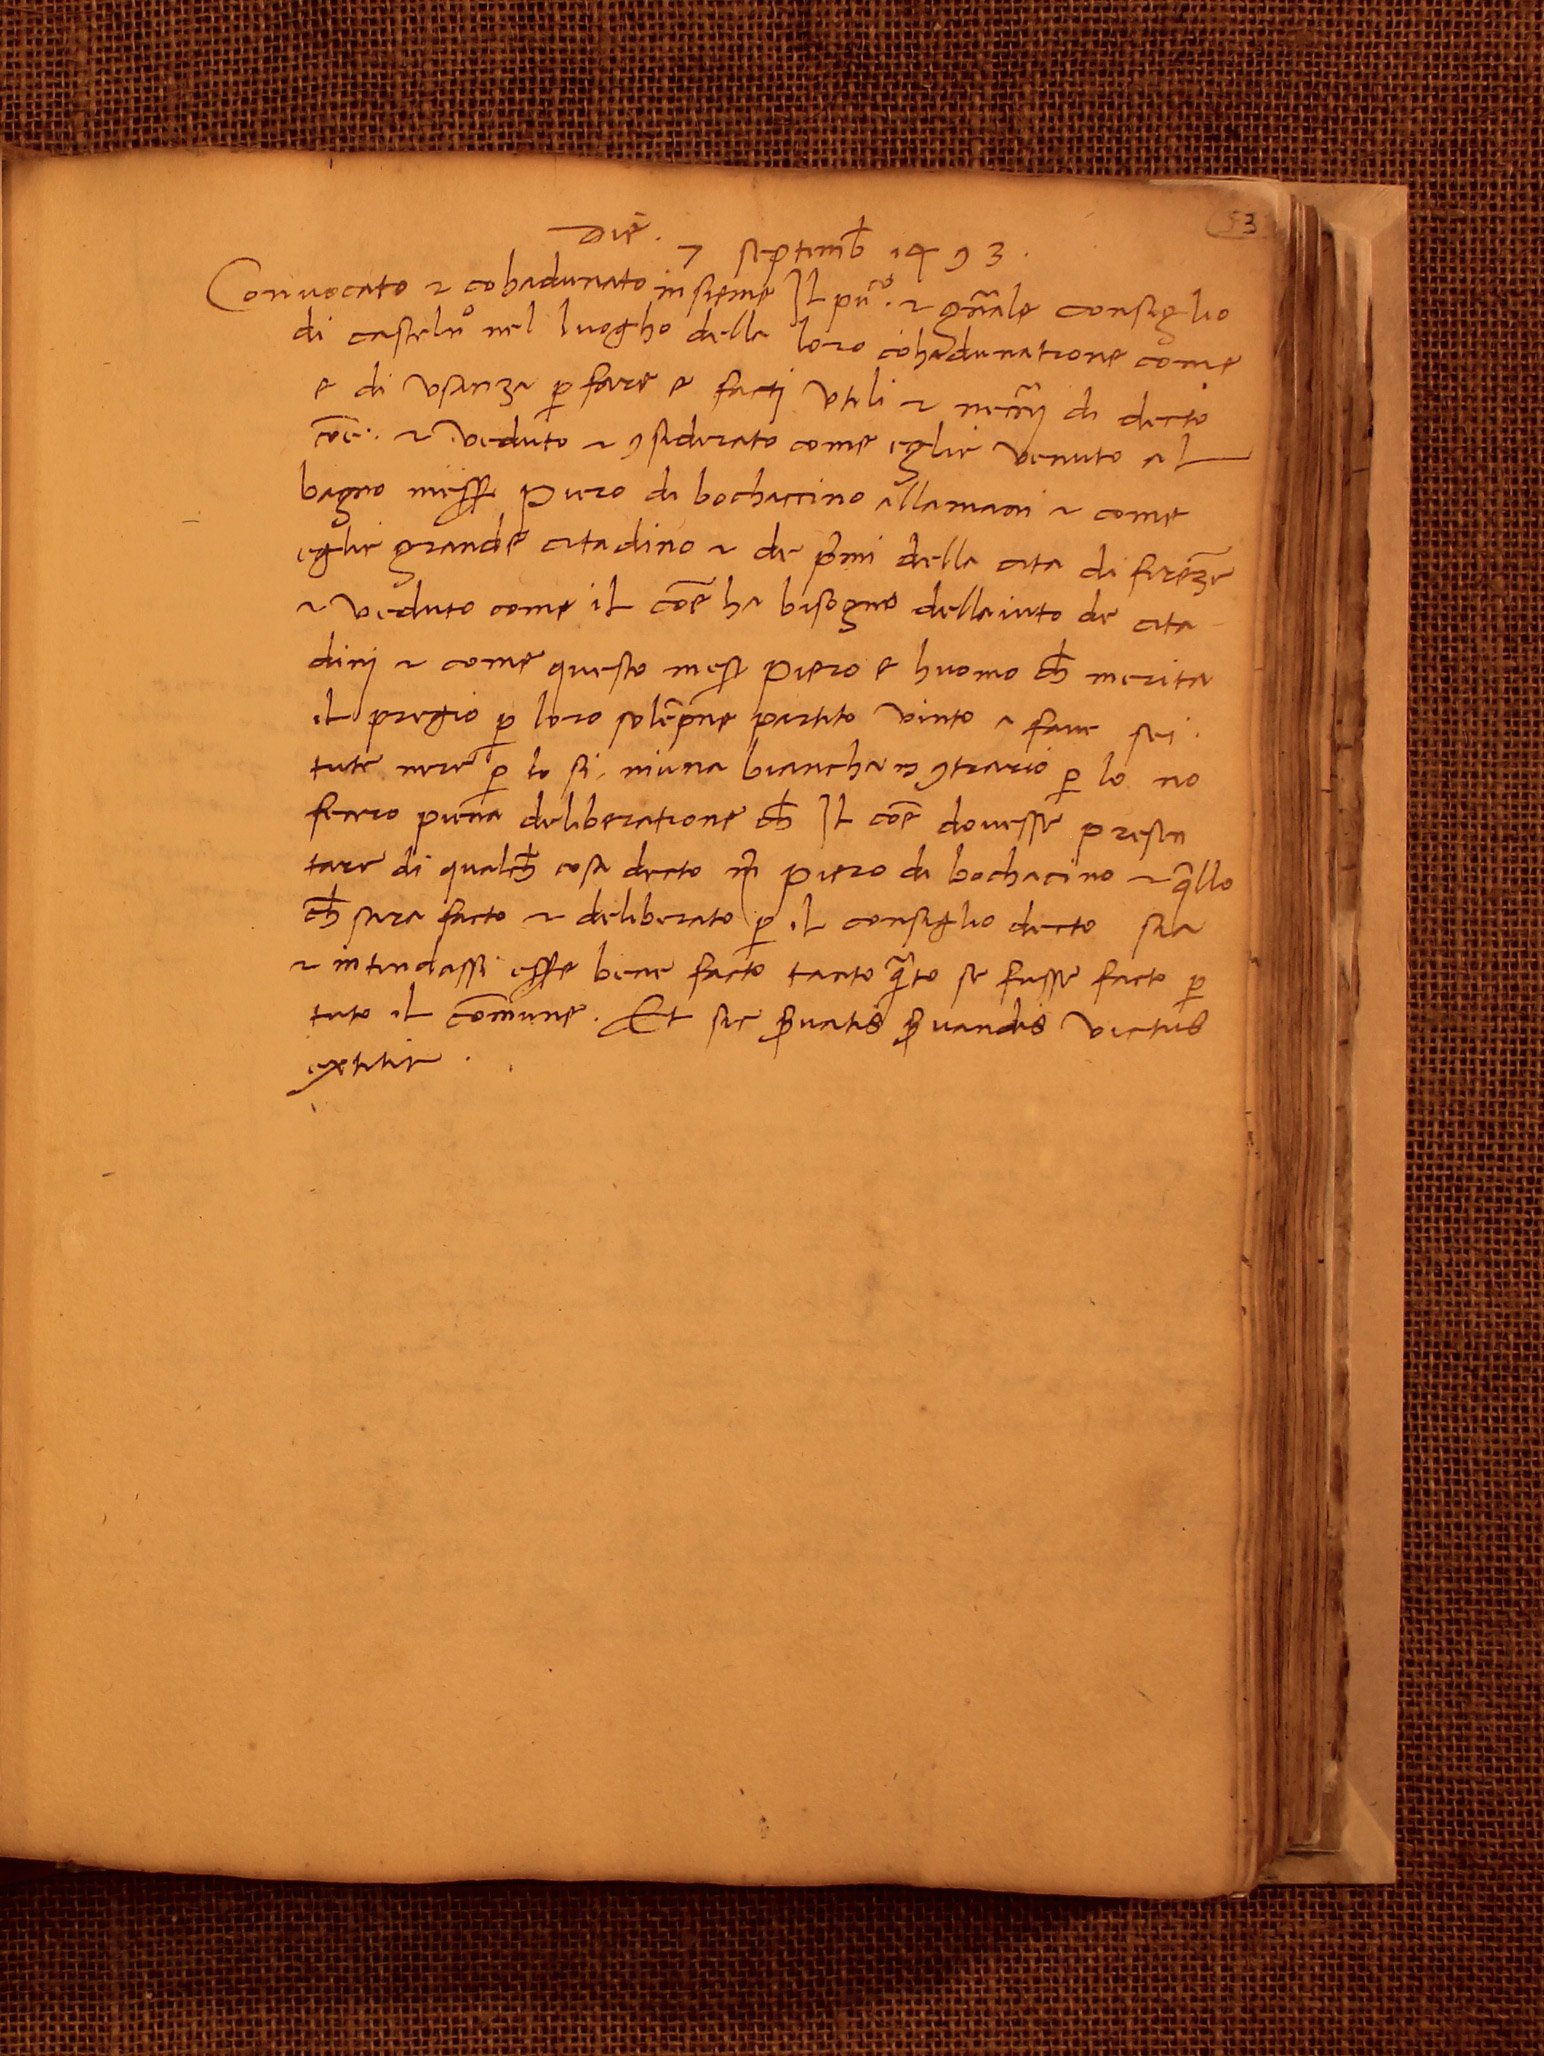 53
Die . 7 septemb̄ 1493 .
Convocato et cohadunato insieme Il pu͞co . et gn͞ale consiglio
di casteln͞o nel luogho della loro cohadunatione come
e di usanza p̱ fare e facti utili et necc͞rij di decto
co͞e . et veduto et ꝯsiderato come eglie venuto al
bagno mess͞ Piero di bochaccino allamani et come
eglie grande citadino et de p͞rimi della cita di fire͞ze
et veduto come il co͞e ha bisogno dellaiuto de cita
dini et come questo mess͞ Piero e huomo ch͞ merita
il pregio p̱ loro sole͞pne partito vinto a fave sei .
tute nere p̱ lo si . niuna biancha in ꝯtrario p̱ lo no
fecero piena deliberatione ch͞ Il co͞e dovesse presen
tare di qualch͞ cosa decto m͞ Piero di bochacino et q͞llo
ch͞ sara facto et deliberato p̱ il consiglio decto sia
et intendassi esse͞ bene facto tanto q͞to se fusse facto p̱
tuto il co͞mune . Et sic s͞rvatis s͞rvandis victus
extitit .